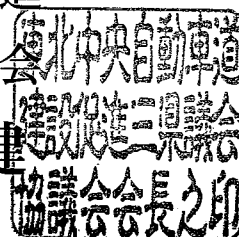 東北中央自動車道
建設促進三県議会
協議会会長之印
会